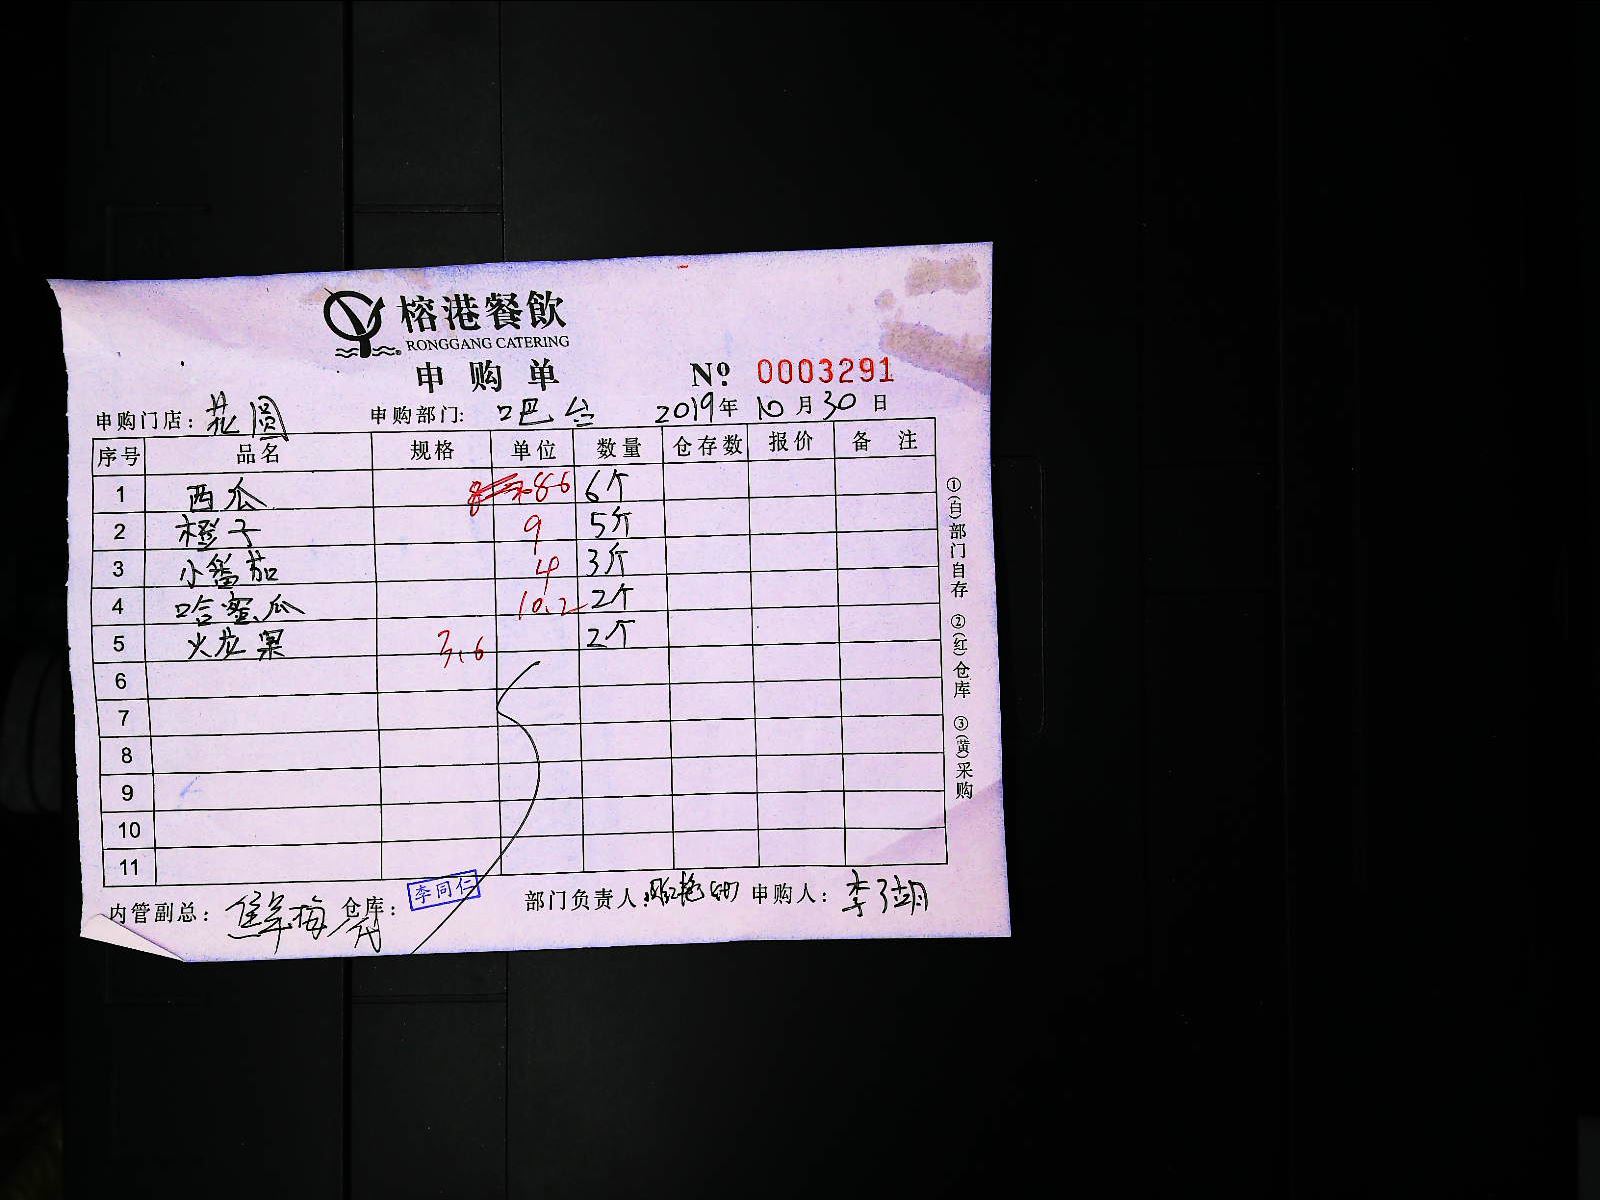 榕港餐飲
RONGGANG CATERING
申购单 Nº 0003291
申购门店：花圆 申购部门：吧台 2019年10月30日
序号 品名 规格 单位 数量 仓存数 报价 备注
1 西瓜 86 6个
2 橙子 9 5斤
3 小番茄 4 3斤
4 哈蜜瓜 10.2 2个
5 火龙果 3.6 2个
6
7
8
9
10
11
内管副总： 仓库： 李同仁 部门负责人： 申购人：李
①(白)部门自存 ②(红)仓库 ③(黄)采购